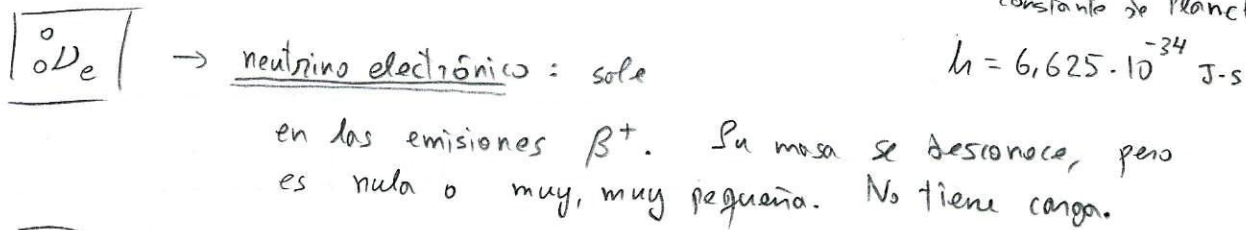 constante de Planc
⁰₀νe → neutrino electrónico : sale
h = 6,625 · 10⁻³⁴ J·s
en las emisiones β⁺. Su masa se desconoce, pero
es nula o muy, muy pequeña. No tiene carga.